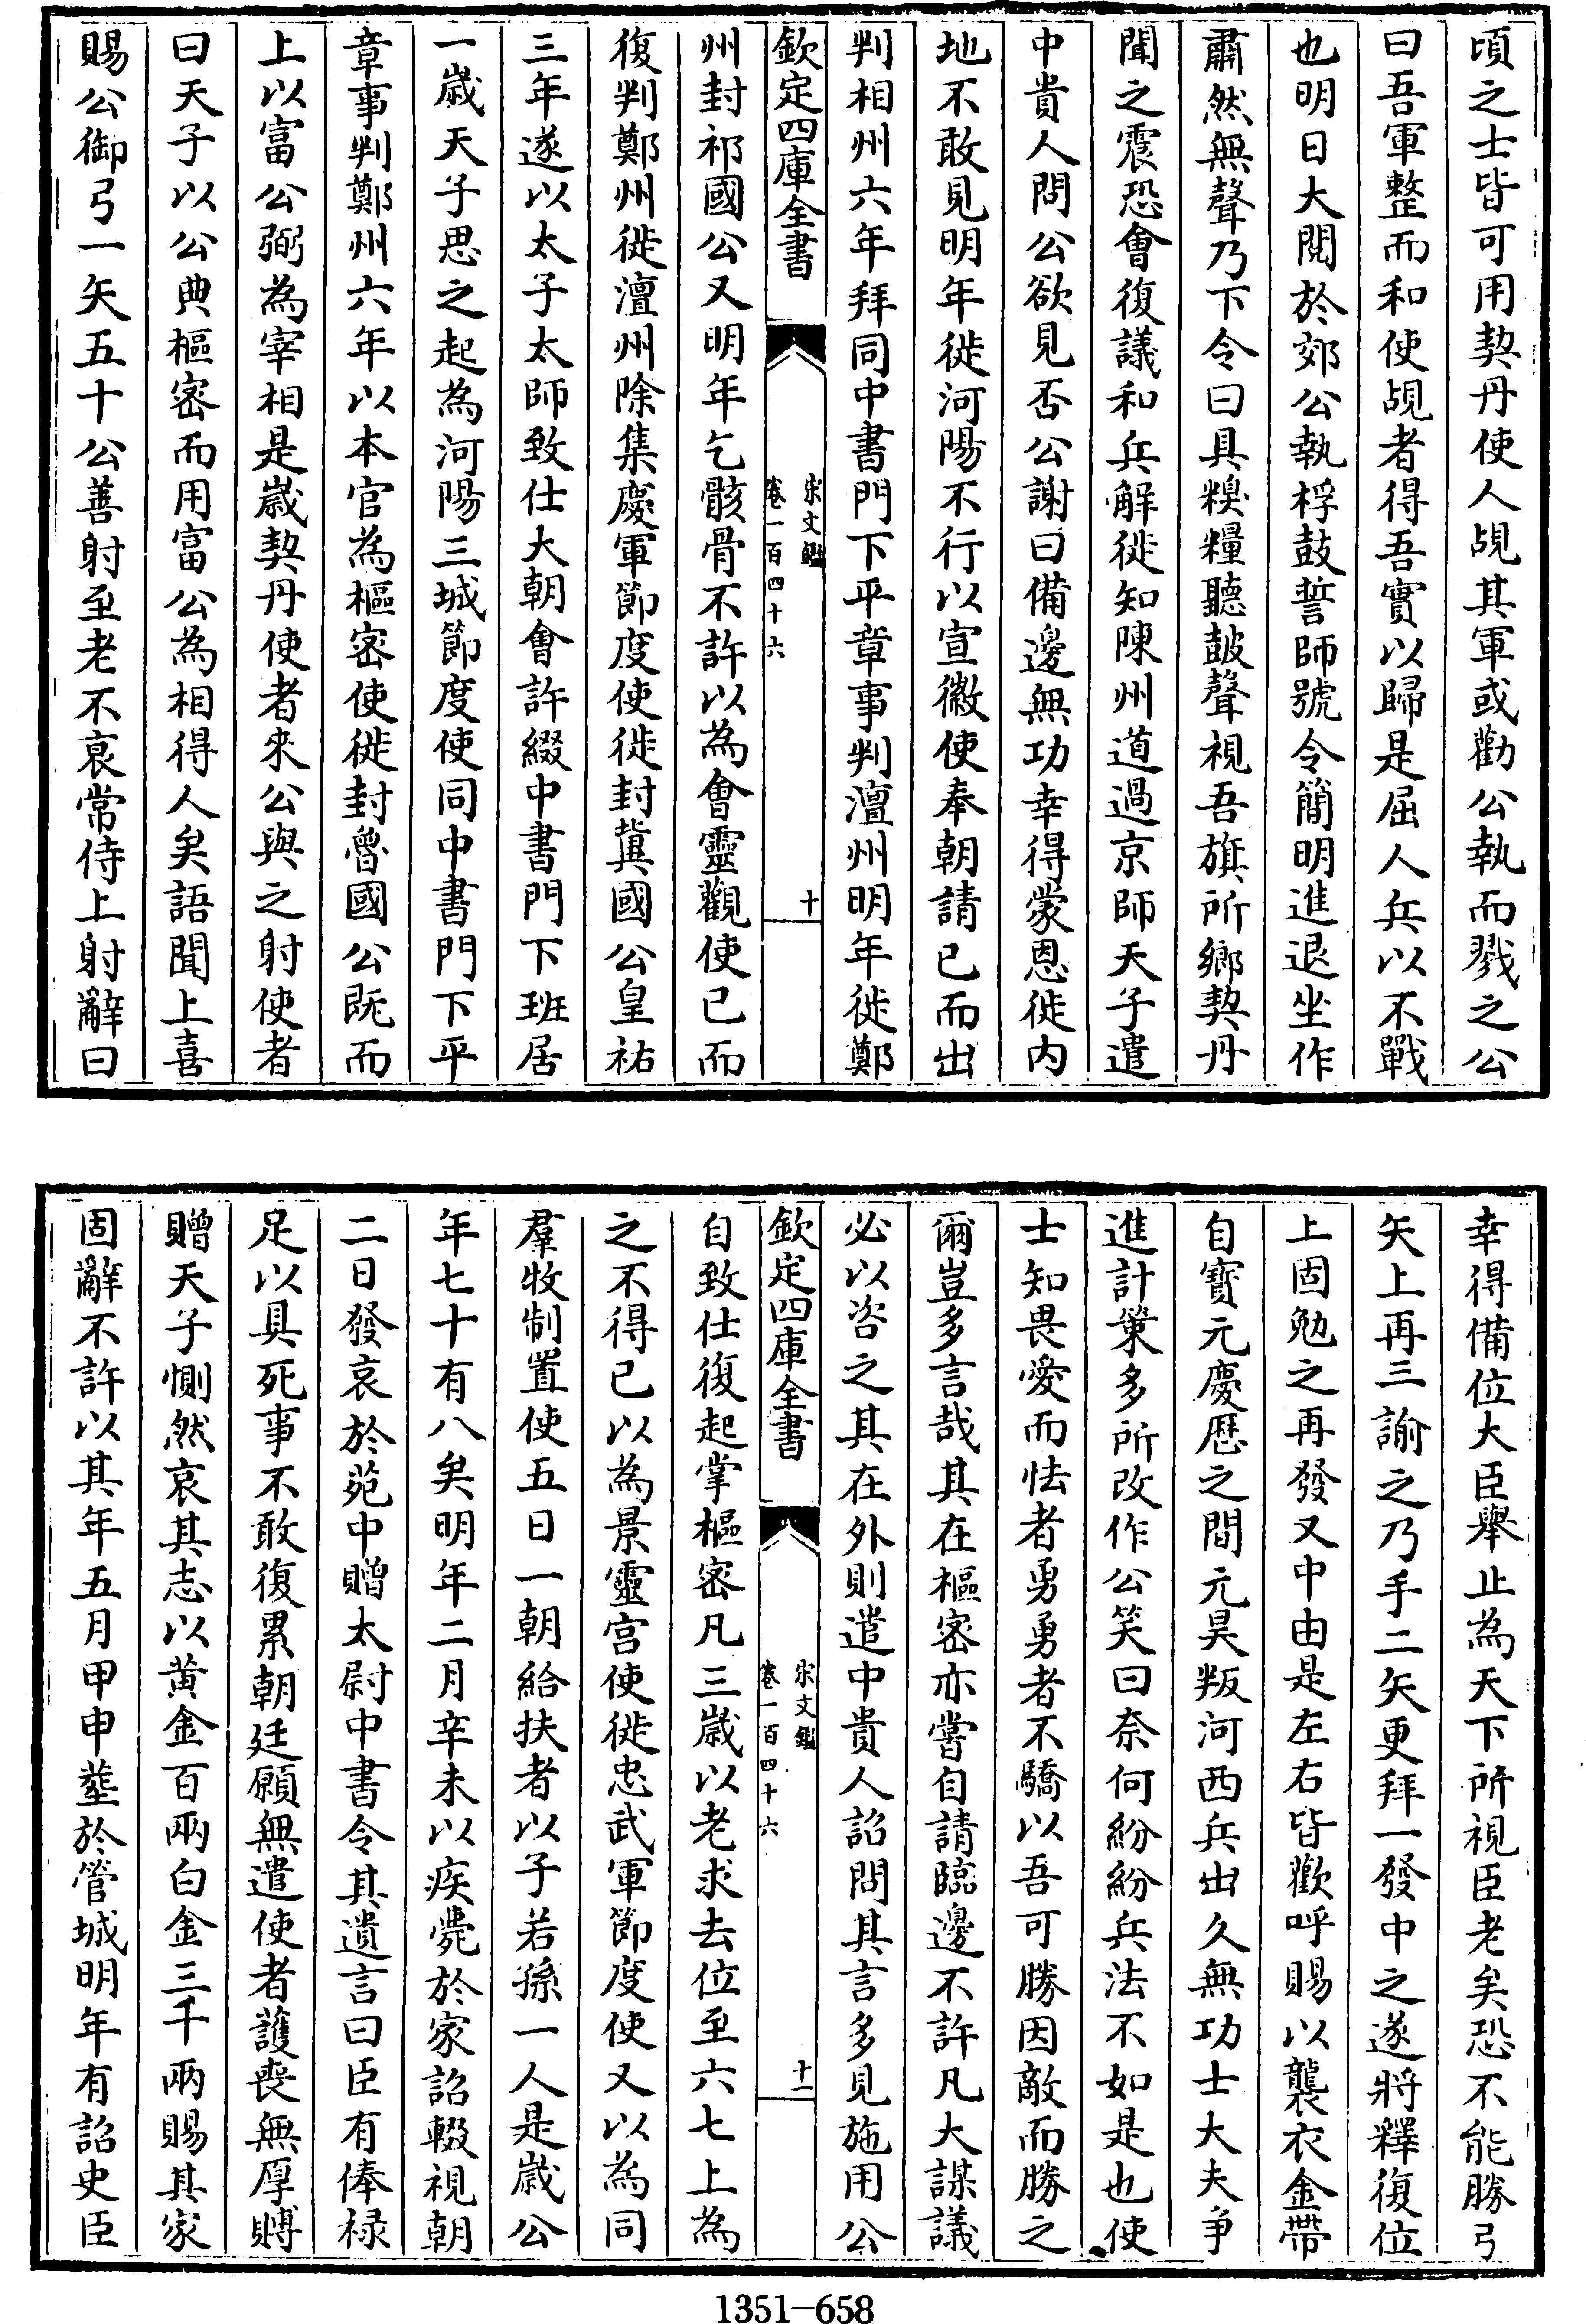 頃之士皆可用契丹使人覘其軍或勸公執而戮之公
曰吾軍整而和使覘者得吾實以歸是屈人兵以不戰
也明日大閱於郊公執桴鼓誓師號令簡明進退坐作
肅然無聲乃下令曰具糗糧聽鼓聲視吾旗所鄉契丹
聞之震恐會復議和兵解徙知陳州道過京師天子遣
中貴人問公欲見否公謝曰備邊無功幸得蒙恩徙内
地不敢見明年徙河陽不行以宣徽使奉朝請已而出
判相州六年拜同中書門下平章事判澶州明年徙鄭
欽定四庫全書
宋文鑑
卷一百四十六
十
州封祁國公又明年乞骸骨不許以為會靈觀使已而
復判鄭州徙澶州除集慶軍節度使徙封冀國公皇祐
三年遂以太子太師致仕大朝會許綴中書門下班居
一歳天子思之起為河陽三城節度使同中書門下平
章事判鄭州六年以本官為樞密使徙封魯國公既而
上以富公弼為宰相是歳契丹使者來公與之射使者
曰天子以公典樞密而用富公為相得人矣語聞上喜
賜公御弓一矢五十公善射至老不衰常侍上射辭曰
幸得備位大臣舉止為天下所視臣老矣恐不能勝弓
矢上再三諭之乃手二矢更拜一發中之遂將釋復位
上固勉之再發又中由是左右皆歡呼賜以襲衣金帶
自寳元慶歴之間元昊叛河西兵出久無功士大夫爭
進計策多所改作公笑曰奈何紛紛兵法不如是也使
士知畏愛而怯者勇勇者不驕以吾可勝因敵而勝之
爾豈多言哉其在樞密亦嘗自請臨邊不許凡大謀議
必以咨之其在外則遣中貴人詔問其言多見施用公
欽定四庫全書
宋文鑑
卷一百四十六
十一
自致仕復起掌樞密凡三歳以老求去位至六七上為
之不得已以為景靈宫使徙忠武軍節度使又以為同
羣牧制置使五日一朝給扶者以子若孫一人是歳公
年七十有八矣明年二月辛未以疾薨於家詔輟視朝
二日發哀於苑中贈太尉中書令其遺言曰臣有俸禄
足以具死事不敢復累朝廷願無遣使者護喪無厚賻
贈天子惻然哀其志以黄金百兩白金三千兩賜其家
固辭不許以其年五月甲申塟於管城明年有詔史臣
1351-658